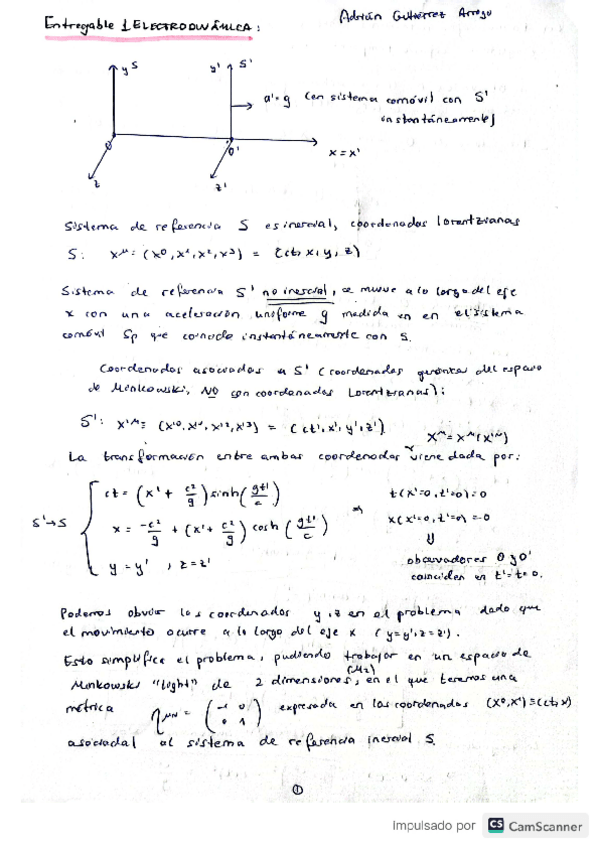 Entregable 1 ELECTRODINÁMICA:
Adrián Gutiérrez Arroyo
y S
y' S'
a'=g (en sistema comóvil con S'
instantáneamente)
O
O'
x=x'
z
z'
Sistema de referencia S es inercial, coordenadas lorentzianas
S: x^μ: (x⁰, x¹, x², x³) = (ct, x, y, z)
Sistema de referencia S' no inercial, se mueve a lo largo del eje
x con una aceleración uniforme g medida en en el sistema
comóvil Sp que coincide instantáneamente con S.
Coordenadas asociadas a S' (coordenadas del espacio
de Minkowski, NO son coordenadas Lorentzianas):
S': x'^μ = (x'⁰, x'¹, x'², x'³) = (ct', x', y', z')
x^μ = x^μ(x'^μ)
La transformación entre ambas coordenadas viene dada por:
S'→S
ct = (x' + c²/g) sinh(gt'/c)
x = -c²/g + (x' + c²/g) cosh(gt'/c)
y = y' , z = z'
⇒
t(x'=0, t'=0) = 0
x(x'=0, t'=0) = 0
⇓
observadores O y O'
coinciden en t'=t=0.
Podemos obviar las coordenadas y, z en el problema dado que
el movimiento ocurre a lo largo del eje x (y=y', z=z').
Esto simplifica el problema, pudiendo trabajar en un espacio de
Minkowski "light" de 2 dimensiones, (M₂) en el que tenemos una
métrica η_μν = (-1 0
0 1) expresada en las coordenadas (x⁰,x¹)≡(ct,x)
asociada al sistema de referencia inercial S.
①
Impulsado por CS CamScanner